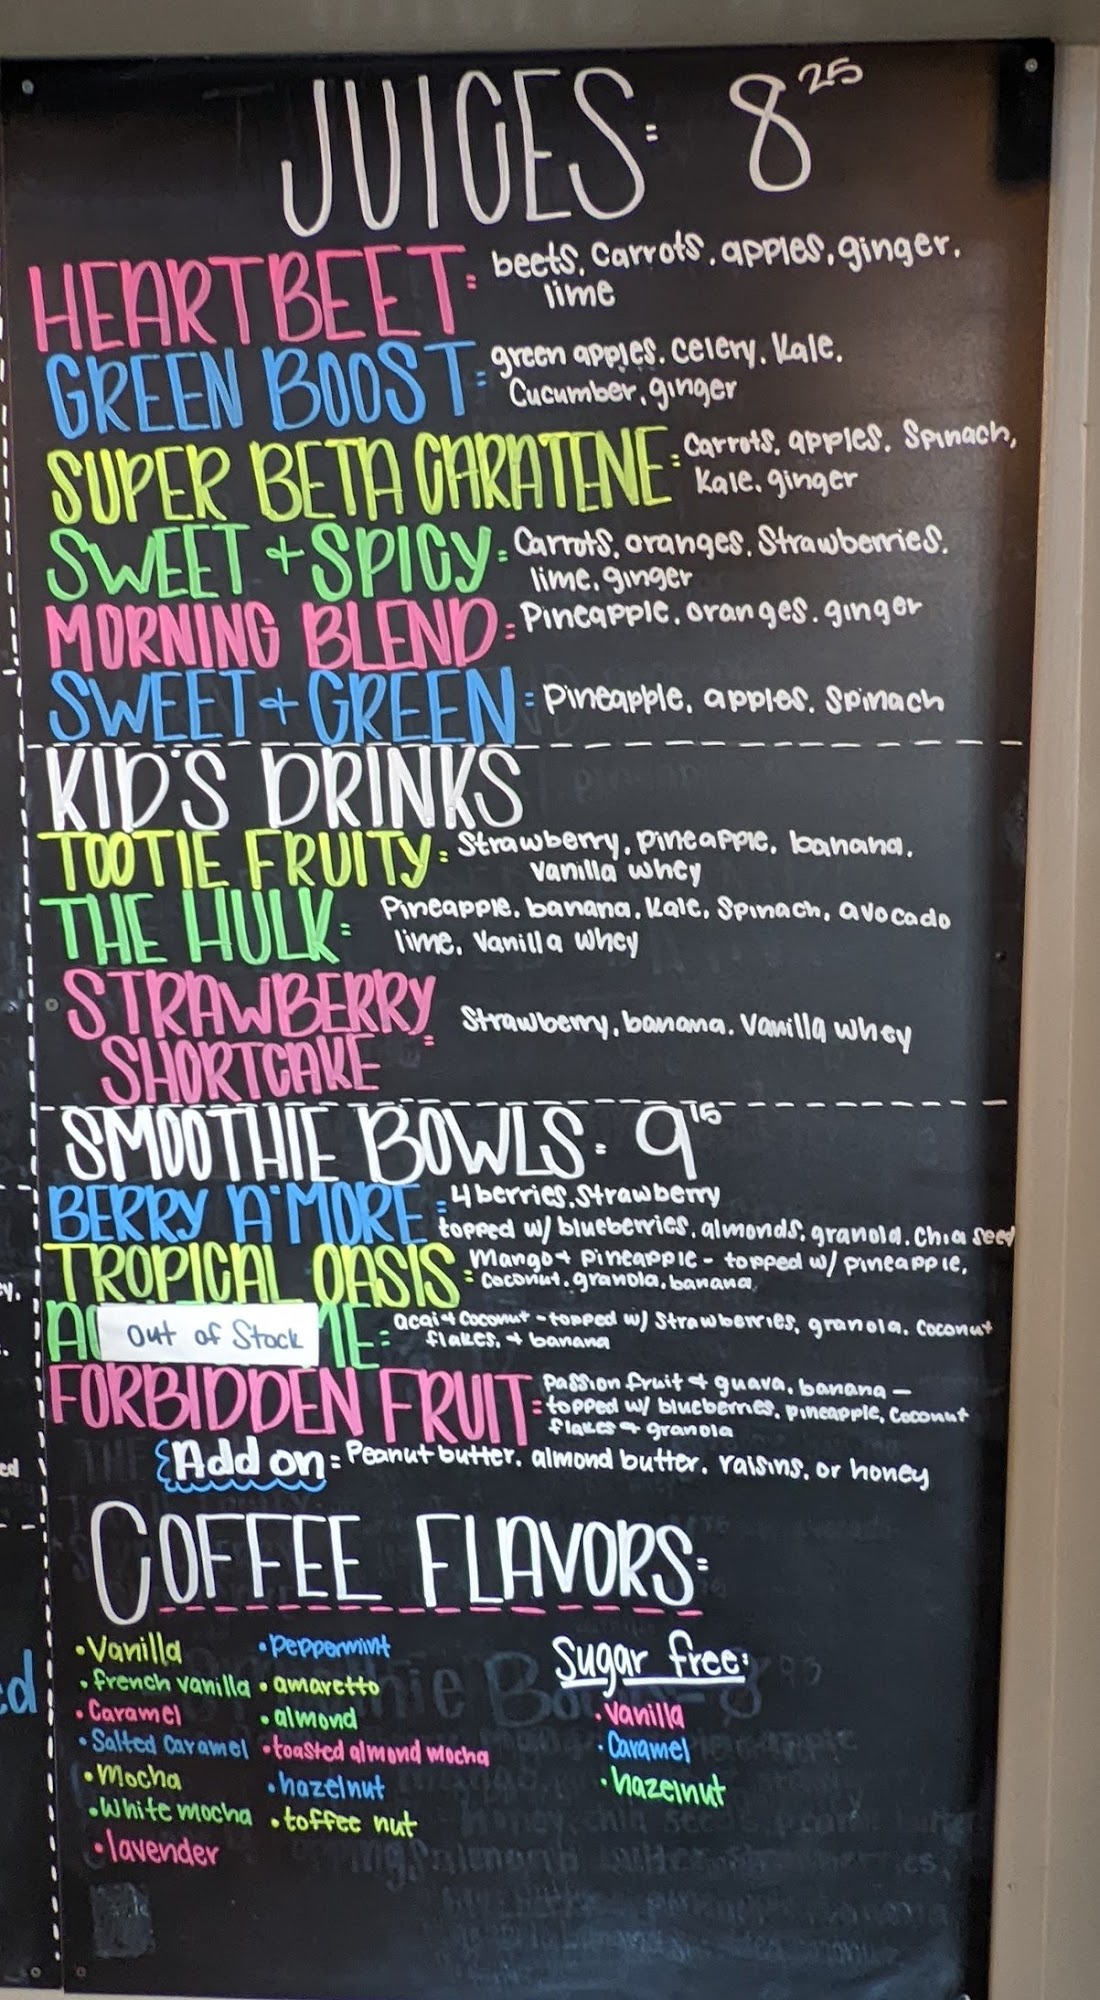 JUICES: 8 25
HEARTBEET: beets, carrots, apples, ginger,
lime
GREEN BOOST: green apples, celery, kale,
Cucumber, ginger
SUPER BETA CARATENE: Carrots, apples, Spinach,
Kale, ginger
SWEET + SPICY: Carrots, oranges, Strawberries,
lime, ginger
MORNING BLEND: Pineapple, oranges, ginger
SWEET + GREEN: Pineapple, apples, Spinach
KID'S DRINKS
TOOTIE FRUITY: Strawberry, pineapple, banana,
Vanilla whey
THE HULK: Pineapple, banana, Kale, Spinach, avocado
lime, Vanilla whey
STRAWBERRY
SHORTCAKE: Strawberry, banana, Vanilla whey
SMOOTHIE BOWLS: 9 15
BERRY A'MORE: 4 berries, Strawberry
topped w/ blueberries, almonds, granola, Chia seed
TROPICAL OASIS: Mango + Pineapple - topped w/ pineapple,
Coconut, granola, banana
Out of Stock
acai + Coconut - topped w/ Strawberries, granola, Coconut
flakes, + banana
FORBIDDEN FRUIT: Passion fruit + guava, banana -
topped w/ blueberries, pineapple, Coconut
flakes + granola
Add on: Peanut butter, almond butter, raisins, or honey
COFFEE FLAVORS:
• Vanilla
• french vanilla
• Caramel
• Salted Caramel
• Mocha
• White mocha
• lavender
• Peppermint
• amaretto
• almond
• toasted almond mocha
• hazelnut
• toffee nut
Sugar free:
• Vanilla
• Caramel
• hazelnut